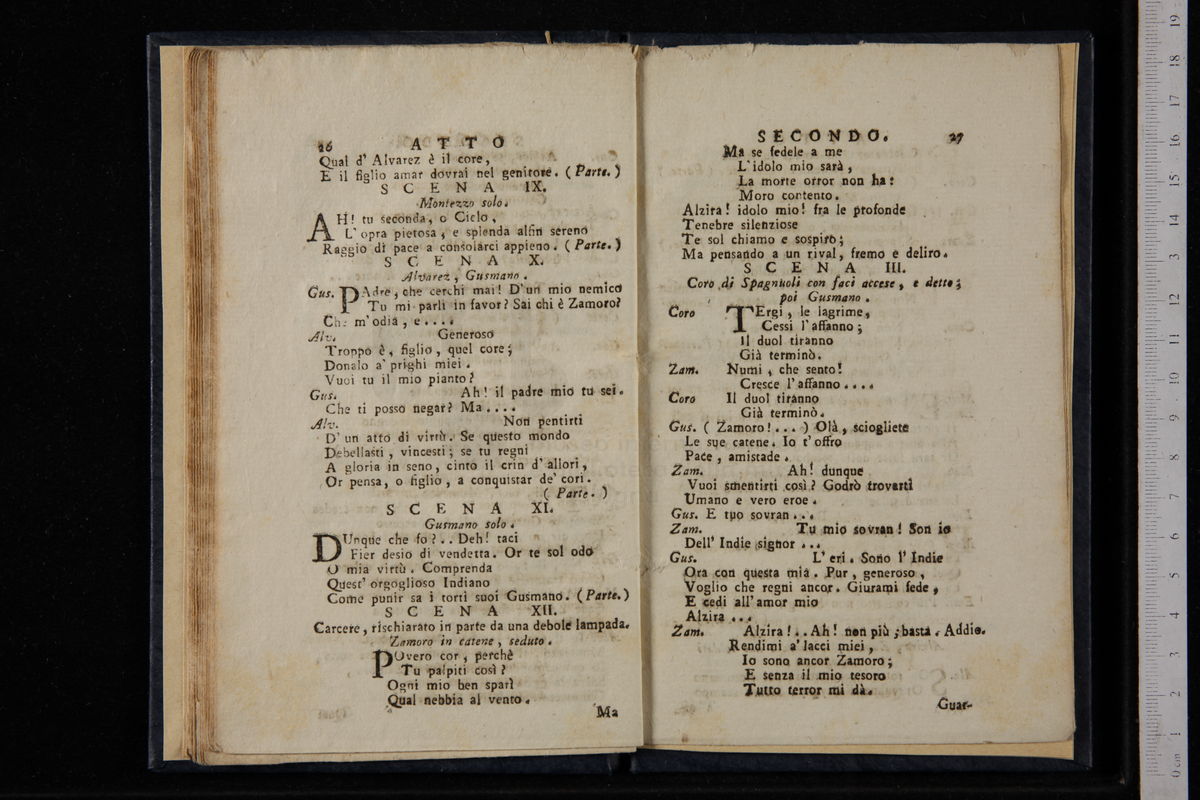 26 ATTO
Qual d' Alvarez è il core,
E il figlio amar dovrai nel genitore. (Parte.)
SCENA IX.
Montezzo solo.
AH! tu seconda, o Cielo,
L' opra pietosa, e splenda alfin sereno
Raggio di pace a consolarci appieno. (Parte.)
SCENA X.
Alvarez, Gusmano.
Gus. PAdre, che cerchi mai! D'un mio nemico
Tu mi parli in favor? Sai chi è Zamoro?
Che m'odia, e....
Alv. Generoso
Troppo è, figlio, quel core;
Donalo a' prighi miei.
Vuoi tu il mio pianto?
Gus. Ah! il padre mio tu sei.
Che ti posso negar? Ma....
Alv. Non pentirti
D' un atto di virtù. Se questo mondo
Debellasti, vincesti; se tu regni
A gloria in seno, cinto il crin d' allori,
Or pensa, o figlio, a conquistar de' cori.
(Parte.)
SCENA XI.
Gusmano solo.
DUnque che fo?.. Deh! taci
Fier desio di vendetta. Or te sol odo
O mia virtù. Comprenda
Quest' orgoglioso Indiano
Come punir sa i torti suoi Gusmano. (Parte.)
SCENA XII.
Carcere, rischiarato in parte da una debole lampada.
Zamoro in catene, seduto.
POvero cor, perchè
Tu palpiti così?
Ogni mio ben sparì
Qual nebbia al vento.
Ma
SECONDO. 27
Ma se fedele a me
L'idolo mio sarà,
La morte orror non ha:
Moro contento.
Alzira! idolo mio! fra le profonde
Tenebre silenziose
Te sol chiamo e sospiro;
Ma pensando a un rival, fremo e deliro.
SCENA III.
Coro di Spagnuoli con faci accese, e detto;
poi Gusmano.
Coro TErgi, le lagrime,
Cessi l'affanno;
Il duol tiranno
Già terminò.
Zam. Numi, che sento!
Cresce l'affanno....
Coro Il duol tiranno
Già terminò.
Gus. (Zamoro!...) Olà, sciogliete
Le sue catene. Io t'offro
Pace, amistade.
Zam. Ah! dunque
Vuoi smentirti così? Godrò trovarti
Umano e vero eroe.
Gus. E tuo sovran...
Zam. Tu mio sovran! Son io
Dell' Indie signor...
Gus. L' eri. Sono l' Indie
Ora con questa mia. Pur, generoso,
Voglio che regni ancor. Giurami fede,
E cedi all'amor mio
Alzira...
Zam. Alzira!.. Ah! non più; basta. Addio.
Rendimi a' lacci miei,
Io sono ancor Zamoro;
E senza il mio tesoro
Tutto terror mi dà.
Guar-
0 cm 1 2 3 4 5 6 7 8 9 10 11 12 13 14 15 16 17 18 19